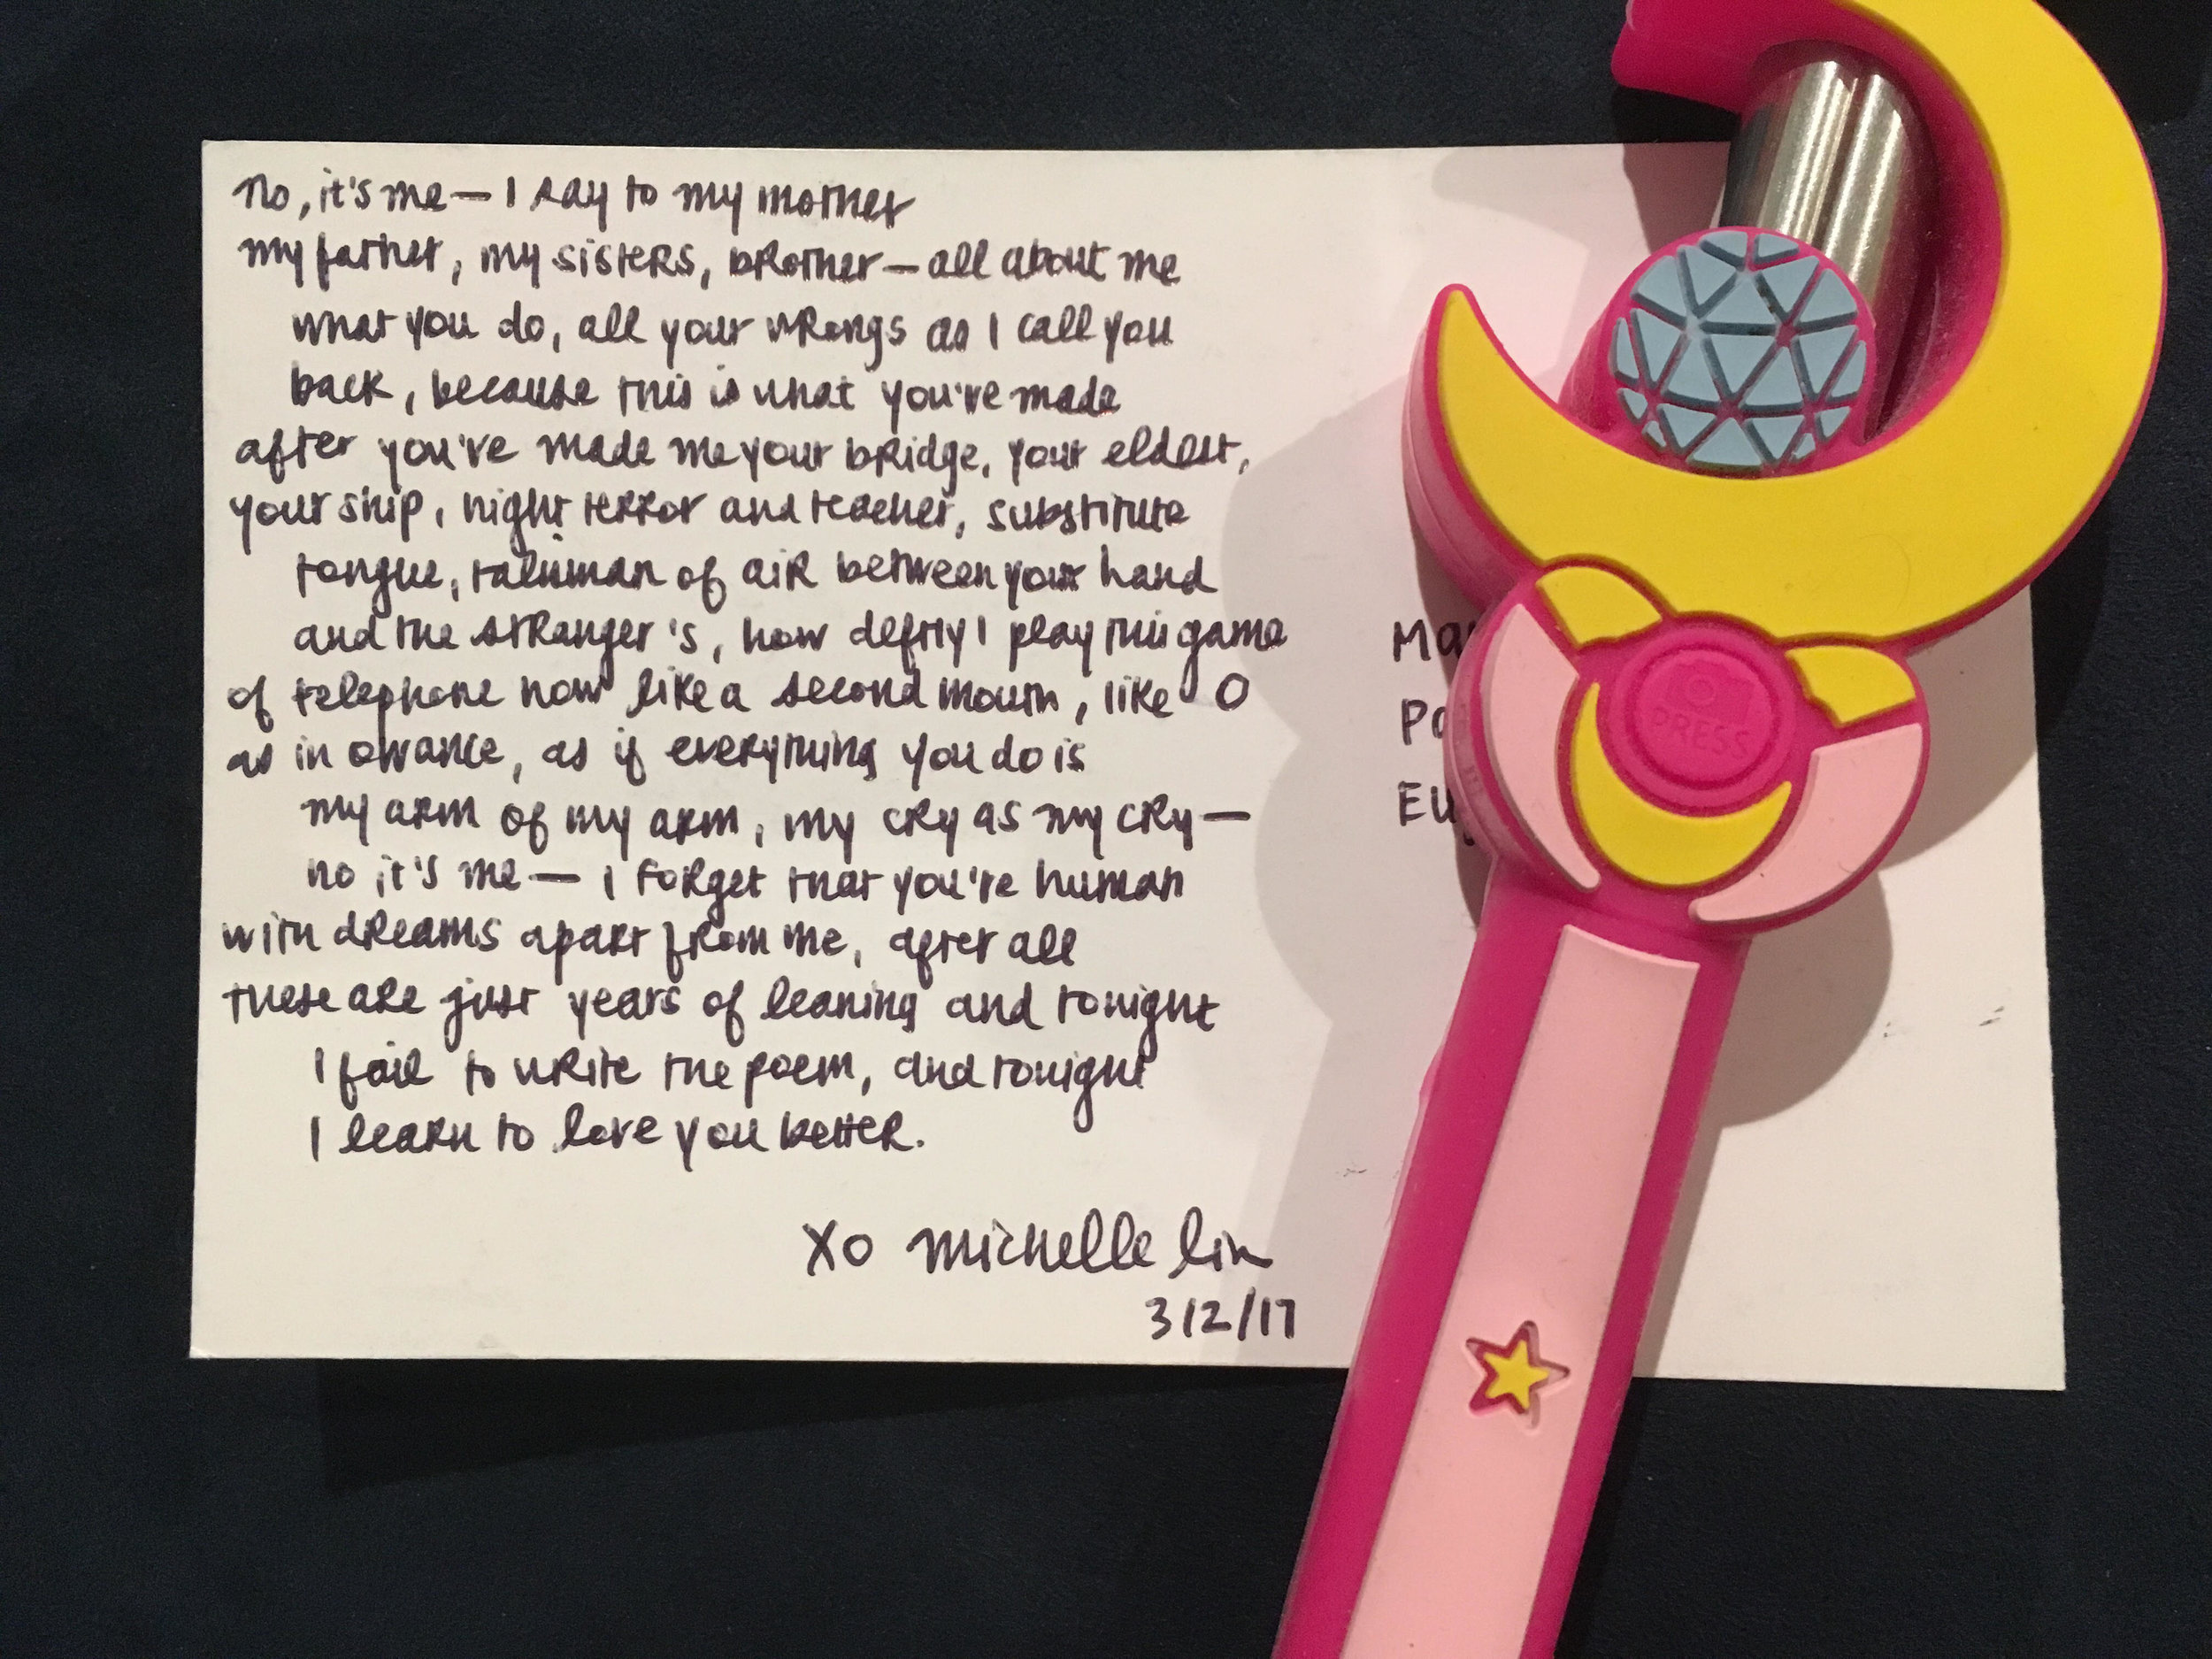 no, it's me — I say to my mother
my father, my sisters, brother — all about me
what you do, all your wrongs as I call you
back, because this is what you've made
after you've made me your bridge, your eldest,
your ship, night terror and teacher, substitute
tongue, talisman of air between your hand
and the stranger's, how deftly I play this game
of telephone now like a second mouth, like O
as in owance, as if everything you do is
my arm of my arm, my cry as my cry —
no it's me — I forget that you're human
with dreams apart from me, after all
these are just years of leaning and tonight
I fail to write the poem, and tonight
I learn to love you better.
XO michelle lin
3/2/17
Ma
Po
Eu
PRESS